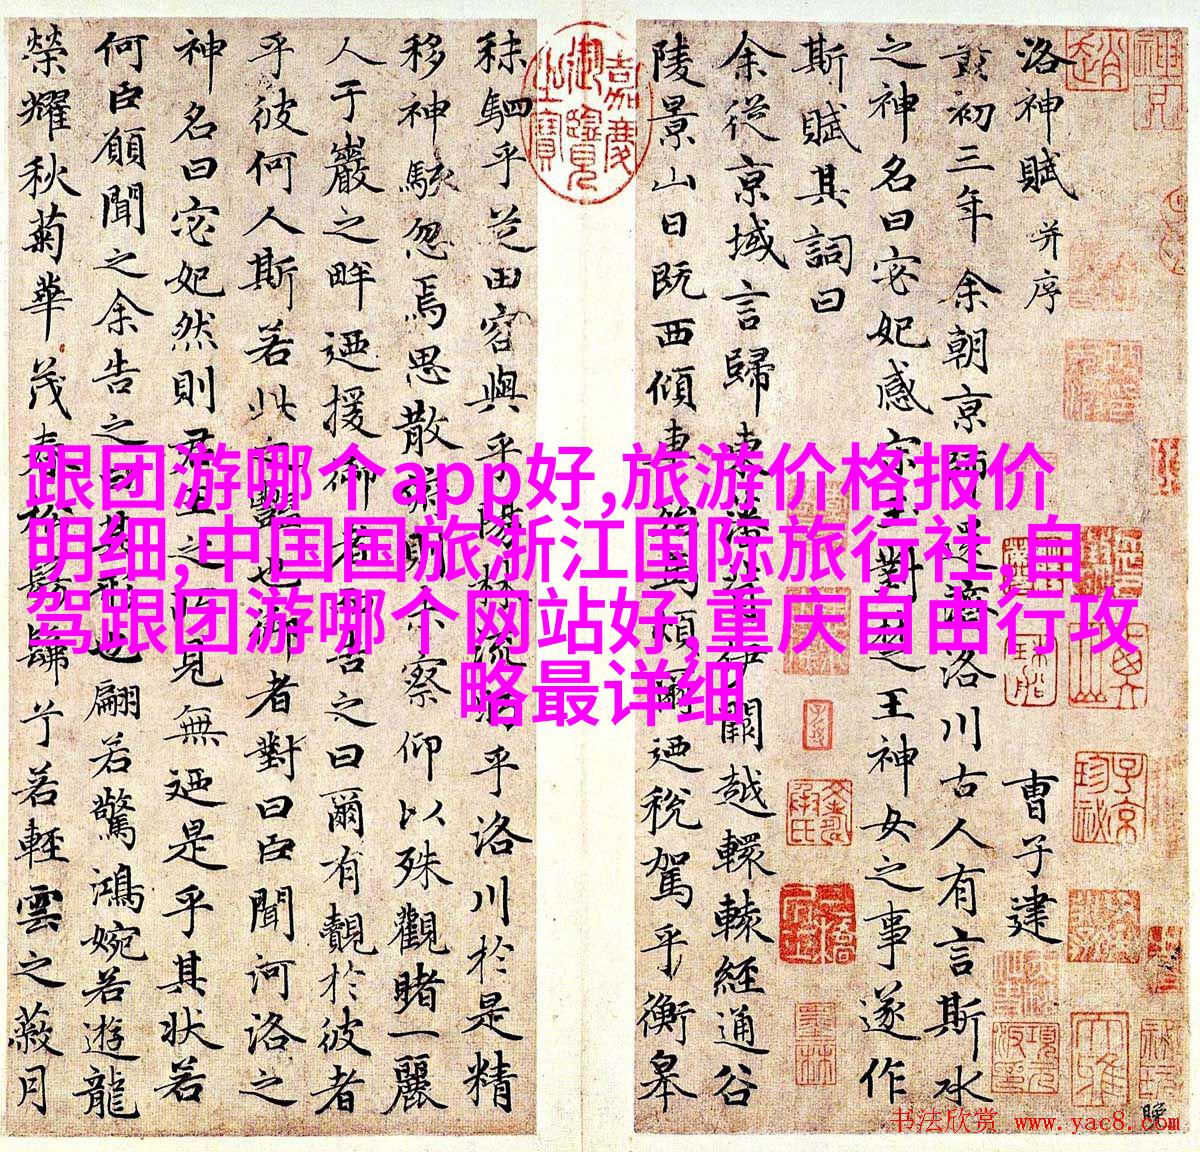 洛神賦 并序
曹子建
黃初三年余朝京師還濟洛川古人有言斯水
之神名曰宓妃感宋玉對楚王神女之事遂作
斯賦其詞曰
余從京域言歸東藩背伊闕越轘轅經通谷
陵景山日既西傾車殆馬煩爾迺稅駕乎衡皋
秣駟乎芝田容與乎陽林流眄乎洛川於是精
移神駭忽焉思散俯則未察仰以殊觀睹一麗
人于巖之畔迺援御者而告之曰爾有觀於彼者
乎彼何人斯若此之豔也御者對曰臣聞河洛之
神名曰宓妃然則君王之所見無迺是乎其狀若
何臣願聞之余告之曰其形也翩若驚鴻婉若遊龍
榮耀秋菊華茂春松髣髴兮若輕雲之蔽月
嘉慶御覽之寶
跟团游哪个app好,旅游价格报价
明细,中国国旅浙江国际旅行社,自
驾跟团游哪个网站好,重庆自由行攻
略最详细
书法欣赏 www.yac8.com